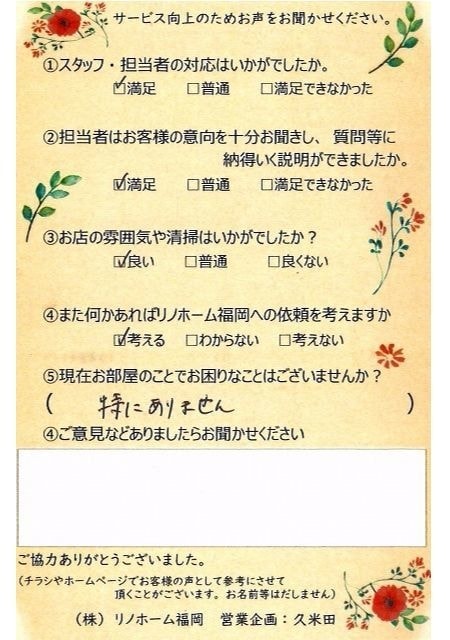 サービス向上のためお声をお聞かせください。
①スタッフ・担当者の対応はいかがでしたか。
☑満足 □普通 □満足できなかった
②担当者はお客様の意向を十分お聞きし、質問等に
納得いく説明ができましたか。
☑満足 □普通 □満足できなかった
③お店の雰囲気や清掃はいかがでしたか？
☑良い □普通 □良くない
④また何かあればリノホーム福岡への依頼を考えますか
☑考える □わからない □考えない
⑤現在お部屋のことでお困りなことはございませんか？
( 特にありません )
④ご意見などありましたらお聞かせください
ご協力ありがとうございました。
(チラシやホームページでお客様の声として参考にさせて
頂くことがございます。お名前等はだしません)
(株) リノホーム福岡 営業企画：久米田